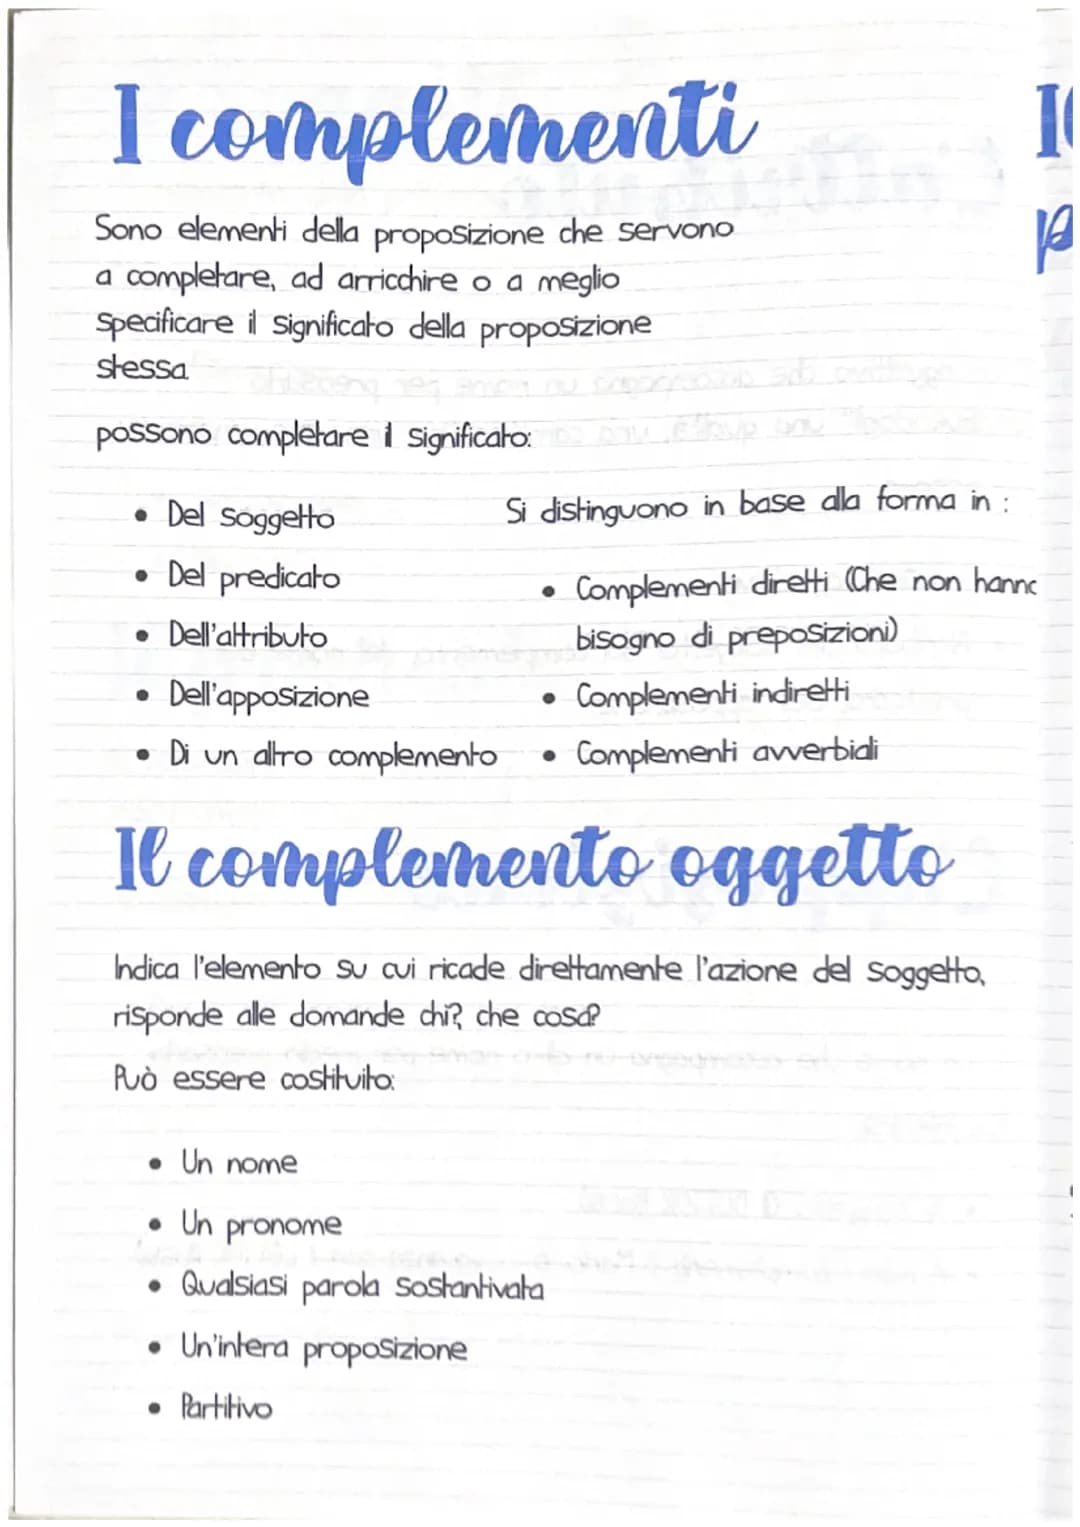 I complementi
Sono elementi della proposizione che servono
a completare, ad arricchire o a meglio
specificare il significato della proposizione
stessa
possono completare il significato:
• Del soggetto
• Del predicato
• Dell'attributo
• Dell'apposizione
• Di un altro complemento
Si distinguono in base alla forma in :
• Complementi diretti (Che non hanno
bisogno di preposizioni)
• Complementi indiretti
• Complementi avverbiali
Il complemento oggetto
Indica l'elemento su cui ricade direttamente l'azione del soggetto,
risponde alle domande chi?, che cosa?
Può essere costituito:
• Un nome
• Un pronome
• Qualsiasi parola sostantivata
• Un'intera proposizione
• Partitivo